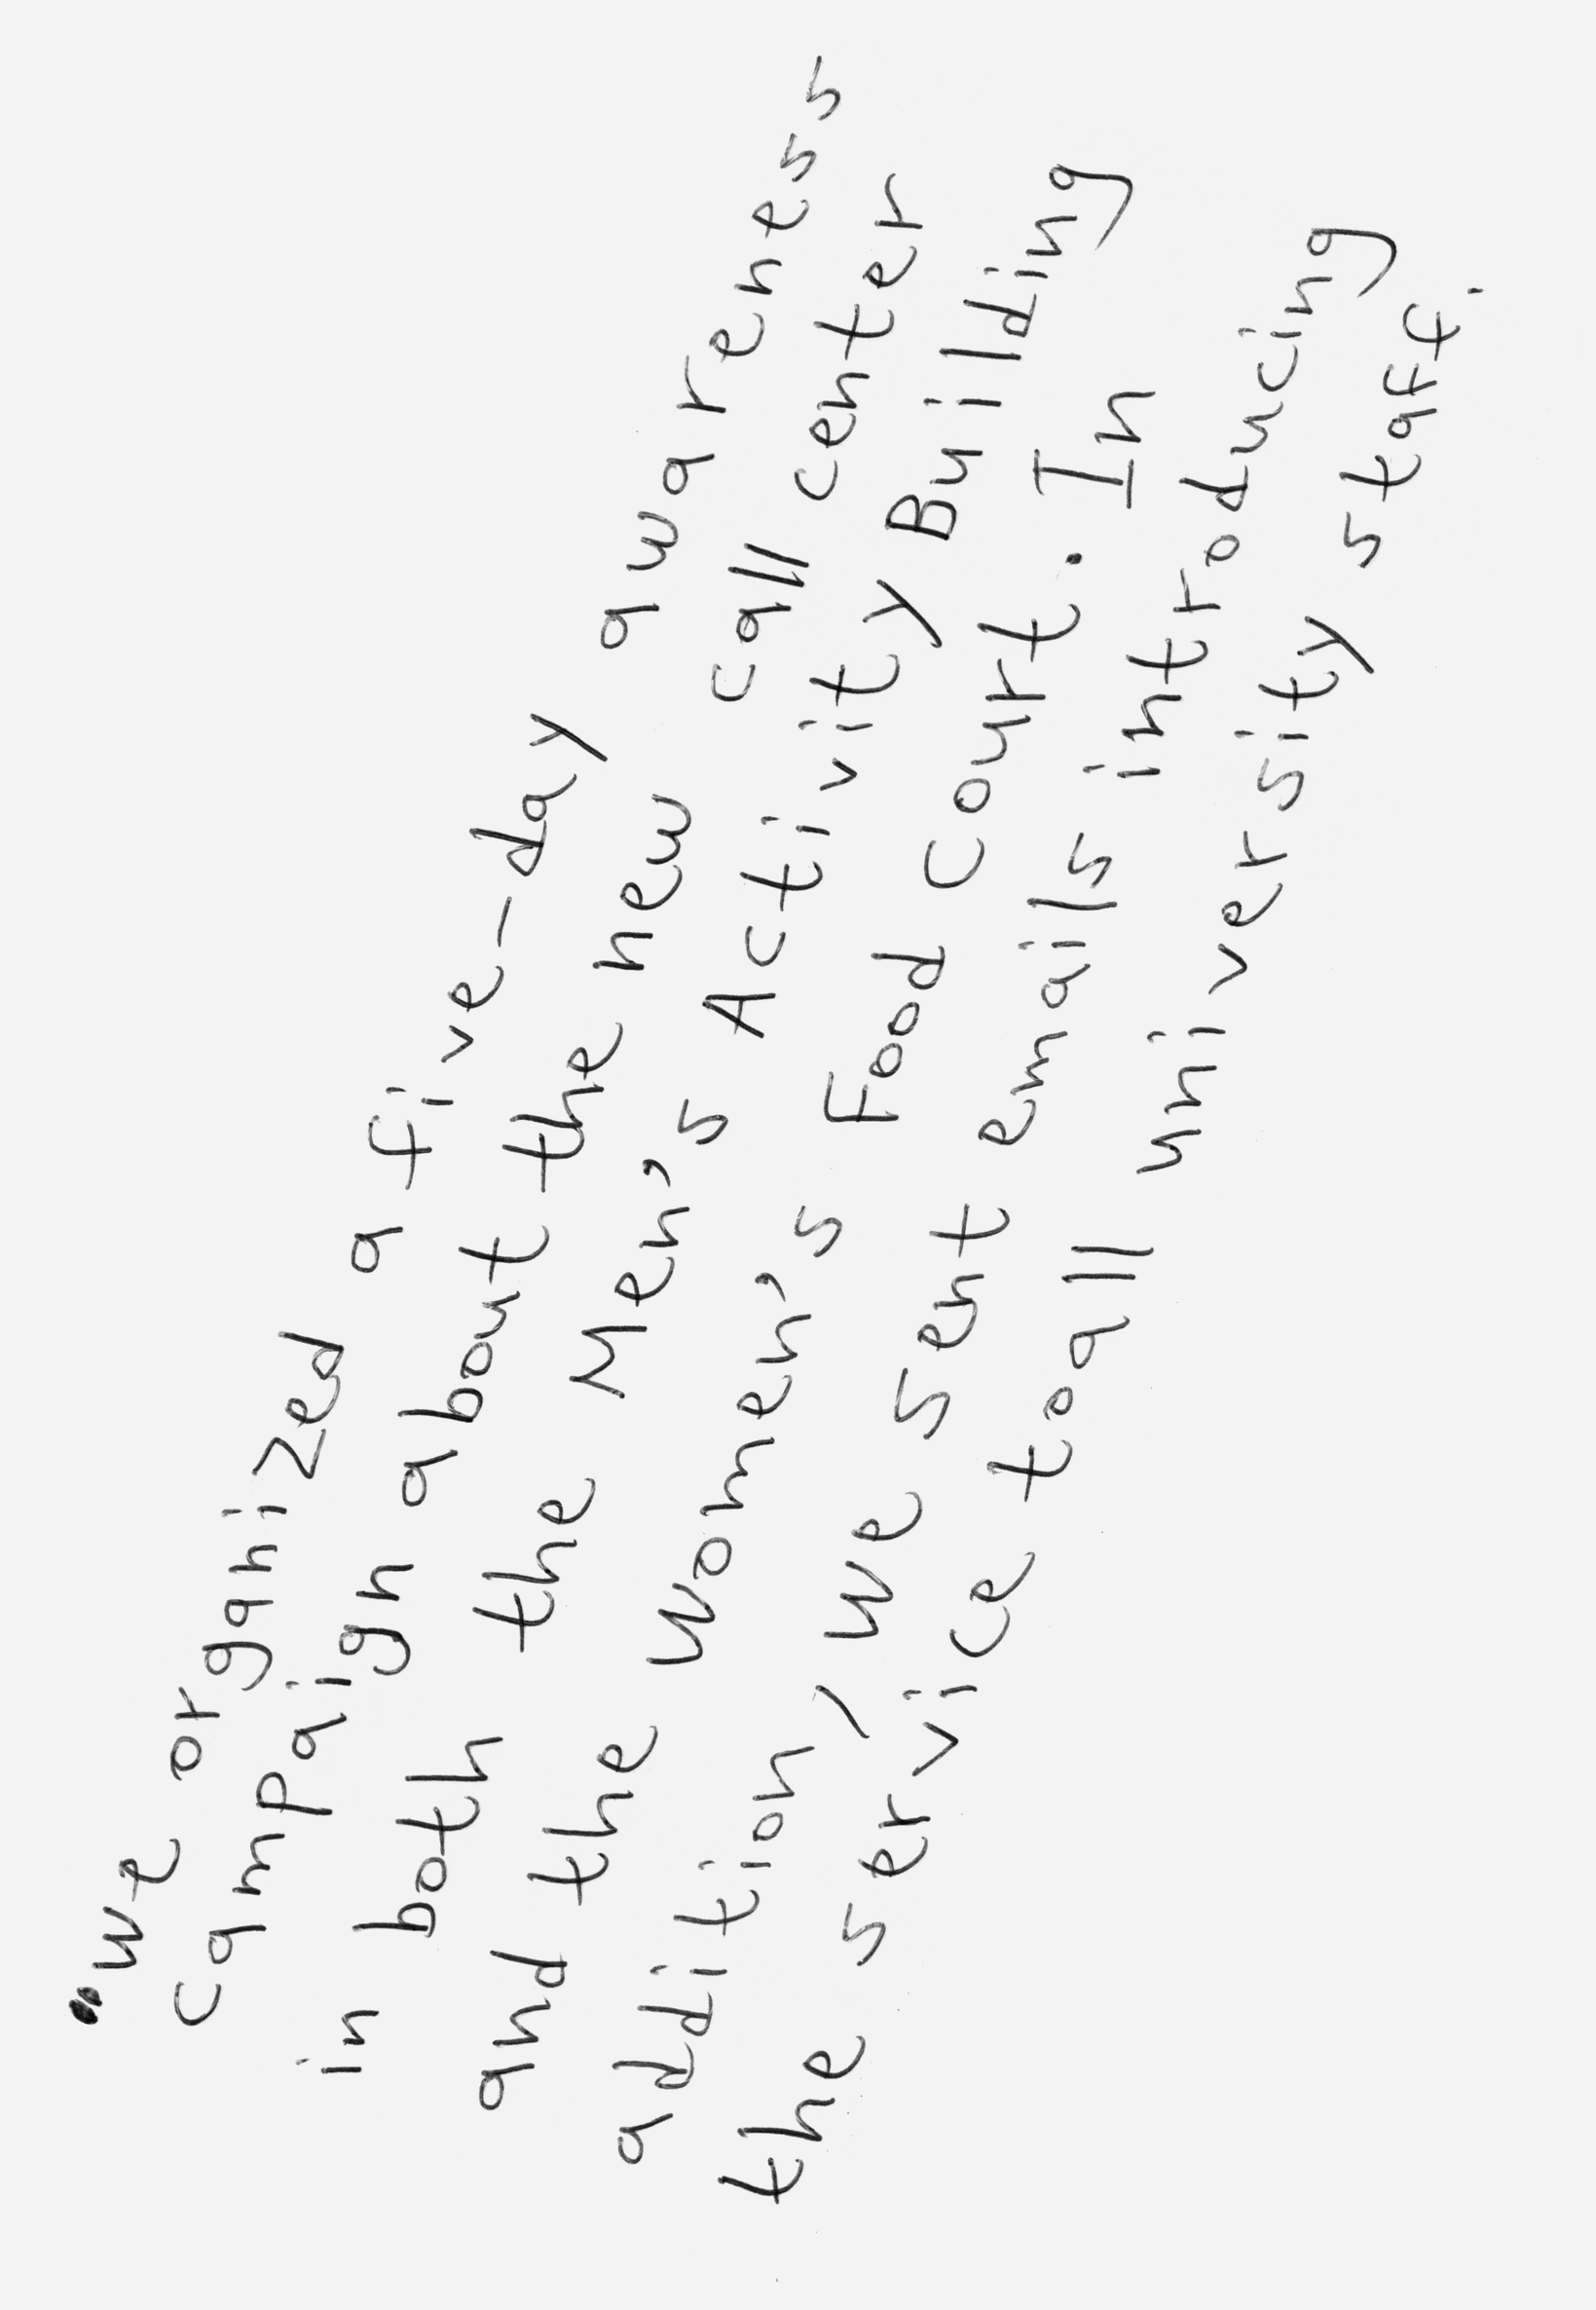 we organized a five-day awareness
campaign about the new call center
in both the Men's Activity Building
and the Women's Food Court. In
addition, we sent emails introducing
the service to all university staff.